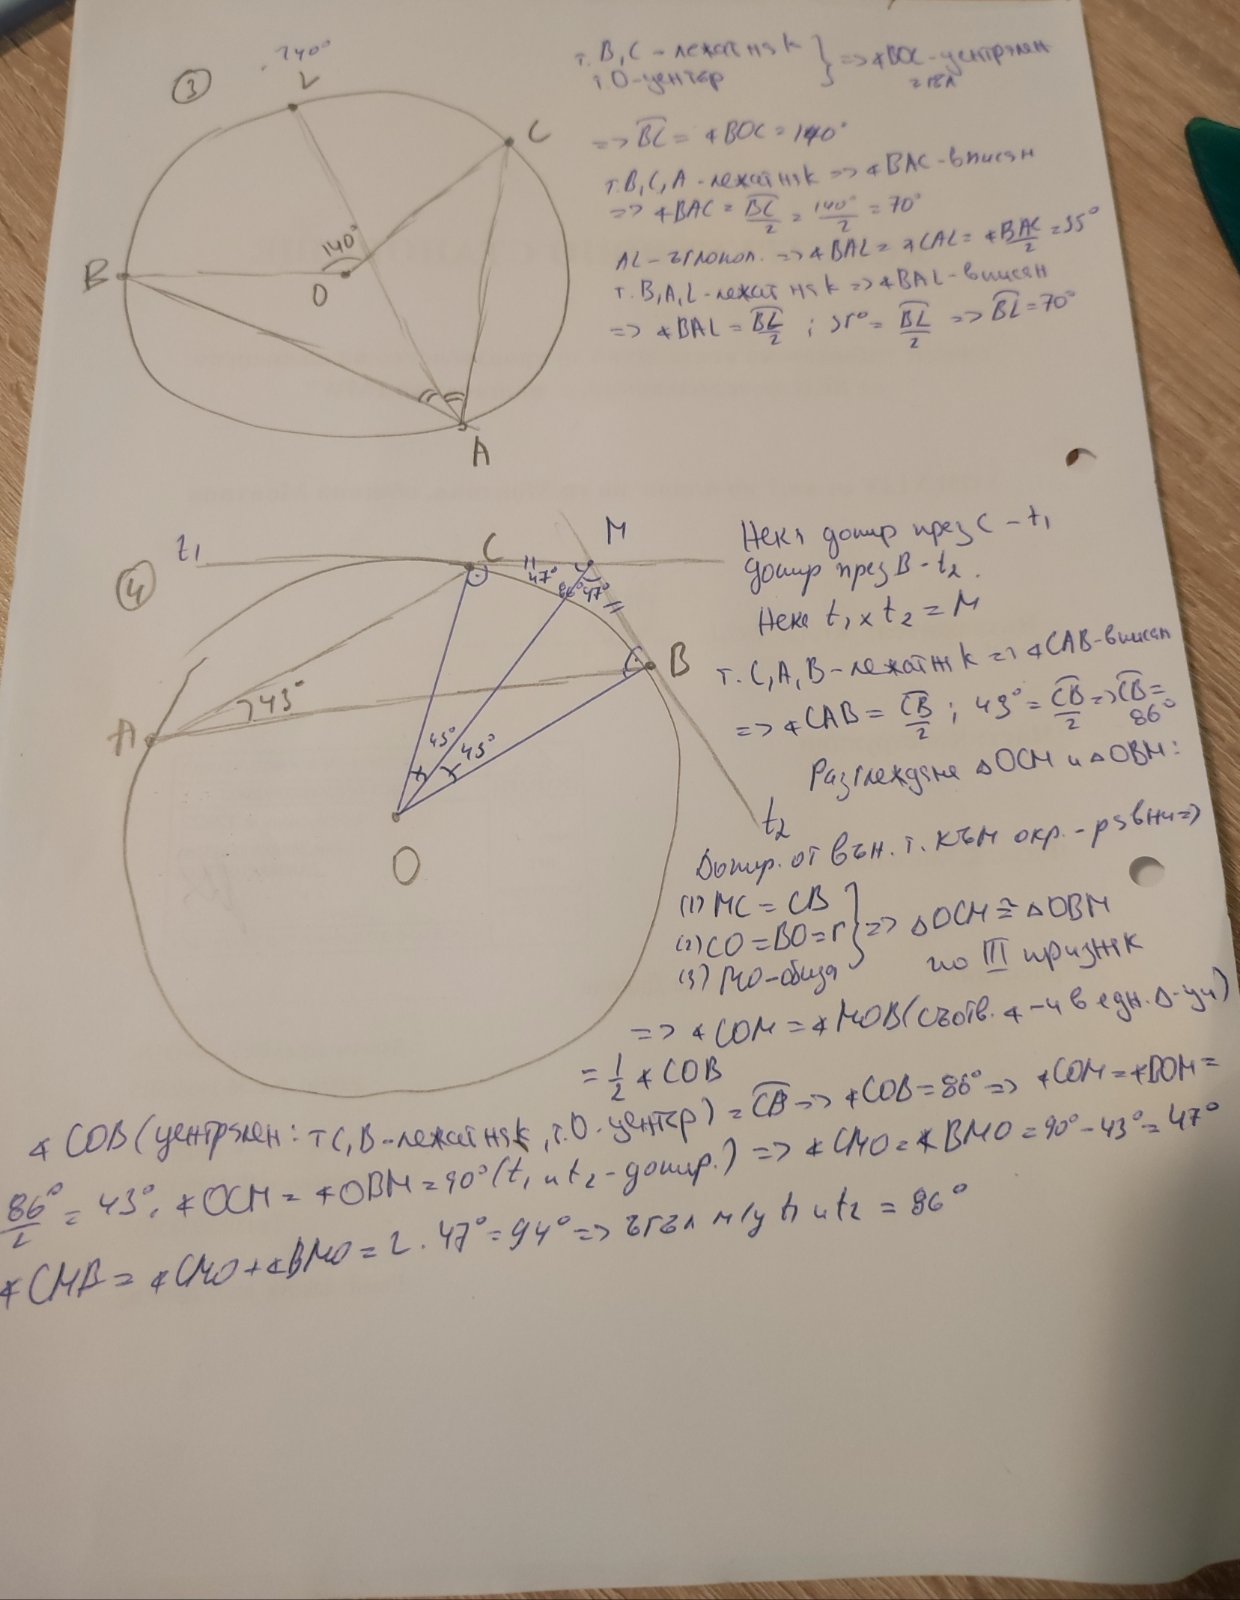 3
240°
L
C
140°
B
O
A
т. B, C - лежат на k } => ∢BOC - централен
т. O - център
=> B͡C = ∢BOC = 140°
т. B, C, A - лежат на k => ∢BAC - вписан
=> ∢BAC = B͡C/2 = 140°/2 = 70°
AL - ъглопол. => ∢BAL = ∢CAL = ∢BAC/2 = 35°
т. B, A, L - лежат на k => ∢BAL - вписан
=> ∢BAL = B͡L/2 ; 35° = B͡L/2 => B͡L = 70°
4
t₁
C
M
47°
86°
47°
B
A
43°
43°
43°
O
t₂
Нека допир през C - t₁
допир през B - t₂.
Нека t₁ x t₂ = M
т. C, A, B - лежат на k => ∢CAB - вписан
=> ∢CAB = C͡B/2 ; 43° = C͡B/2 => C͡B = 86°
Разглеждаме △OCM и △OBM:
Допир. от вън. т. към окр. - равни =>
(1) MC = CB
(2) CO = BO = r } => △OCM ≅ △OBM
(3) MO - обща по III признак
=> ∢COM = ∢MOB (съотв. ∢-и в едн. △-ци)
= 1/2 ∢COB
∢COB (централен: т C, B - лежат на k, т. O - център) = C͡B => ∢COB = 86° => ∢COM = ∢BOM =
86°/2 = 43°, ∢OCM = ∢OBM = 90° (t₁ и t₂ - допир.) => ∢CMO = ∢BMO = 90° - 43° = 47°
∢CMB = ∢CMO + ∢BMO = 2 . 47° = 94° => ъгъл м/у t₁ и t₂ = 86°